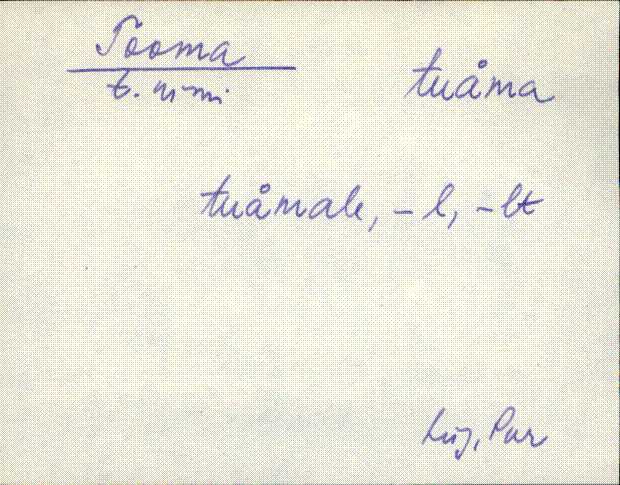 Tooma
tuåma
t. nimi
tuåmale, -l, -lt
Lüg, Pur